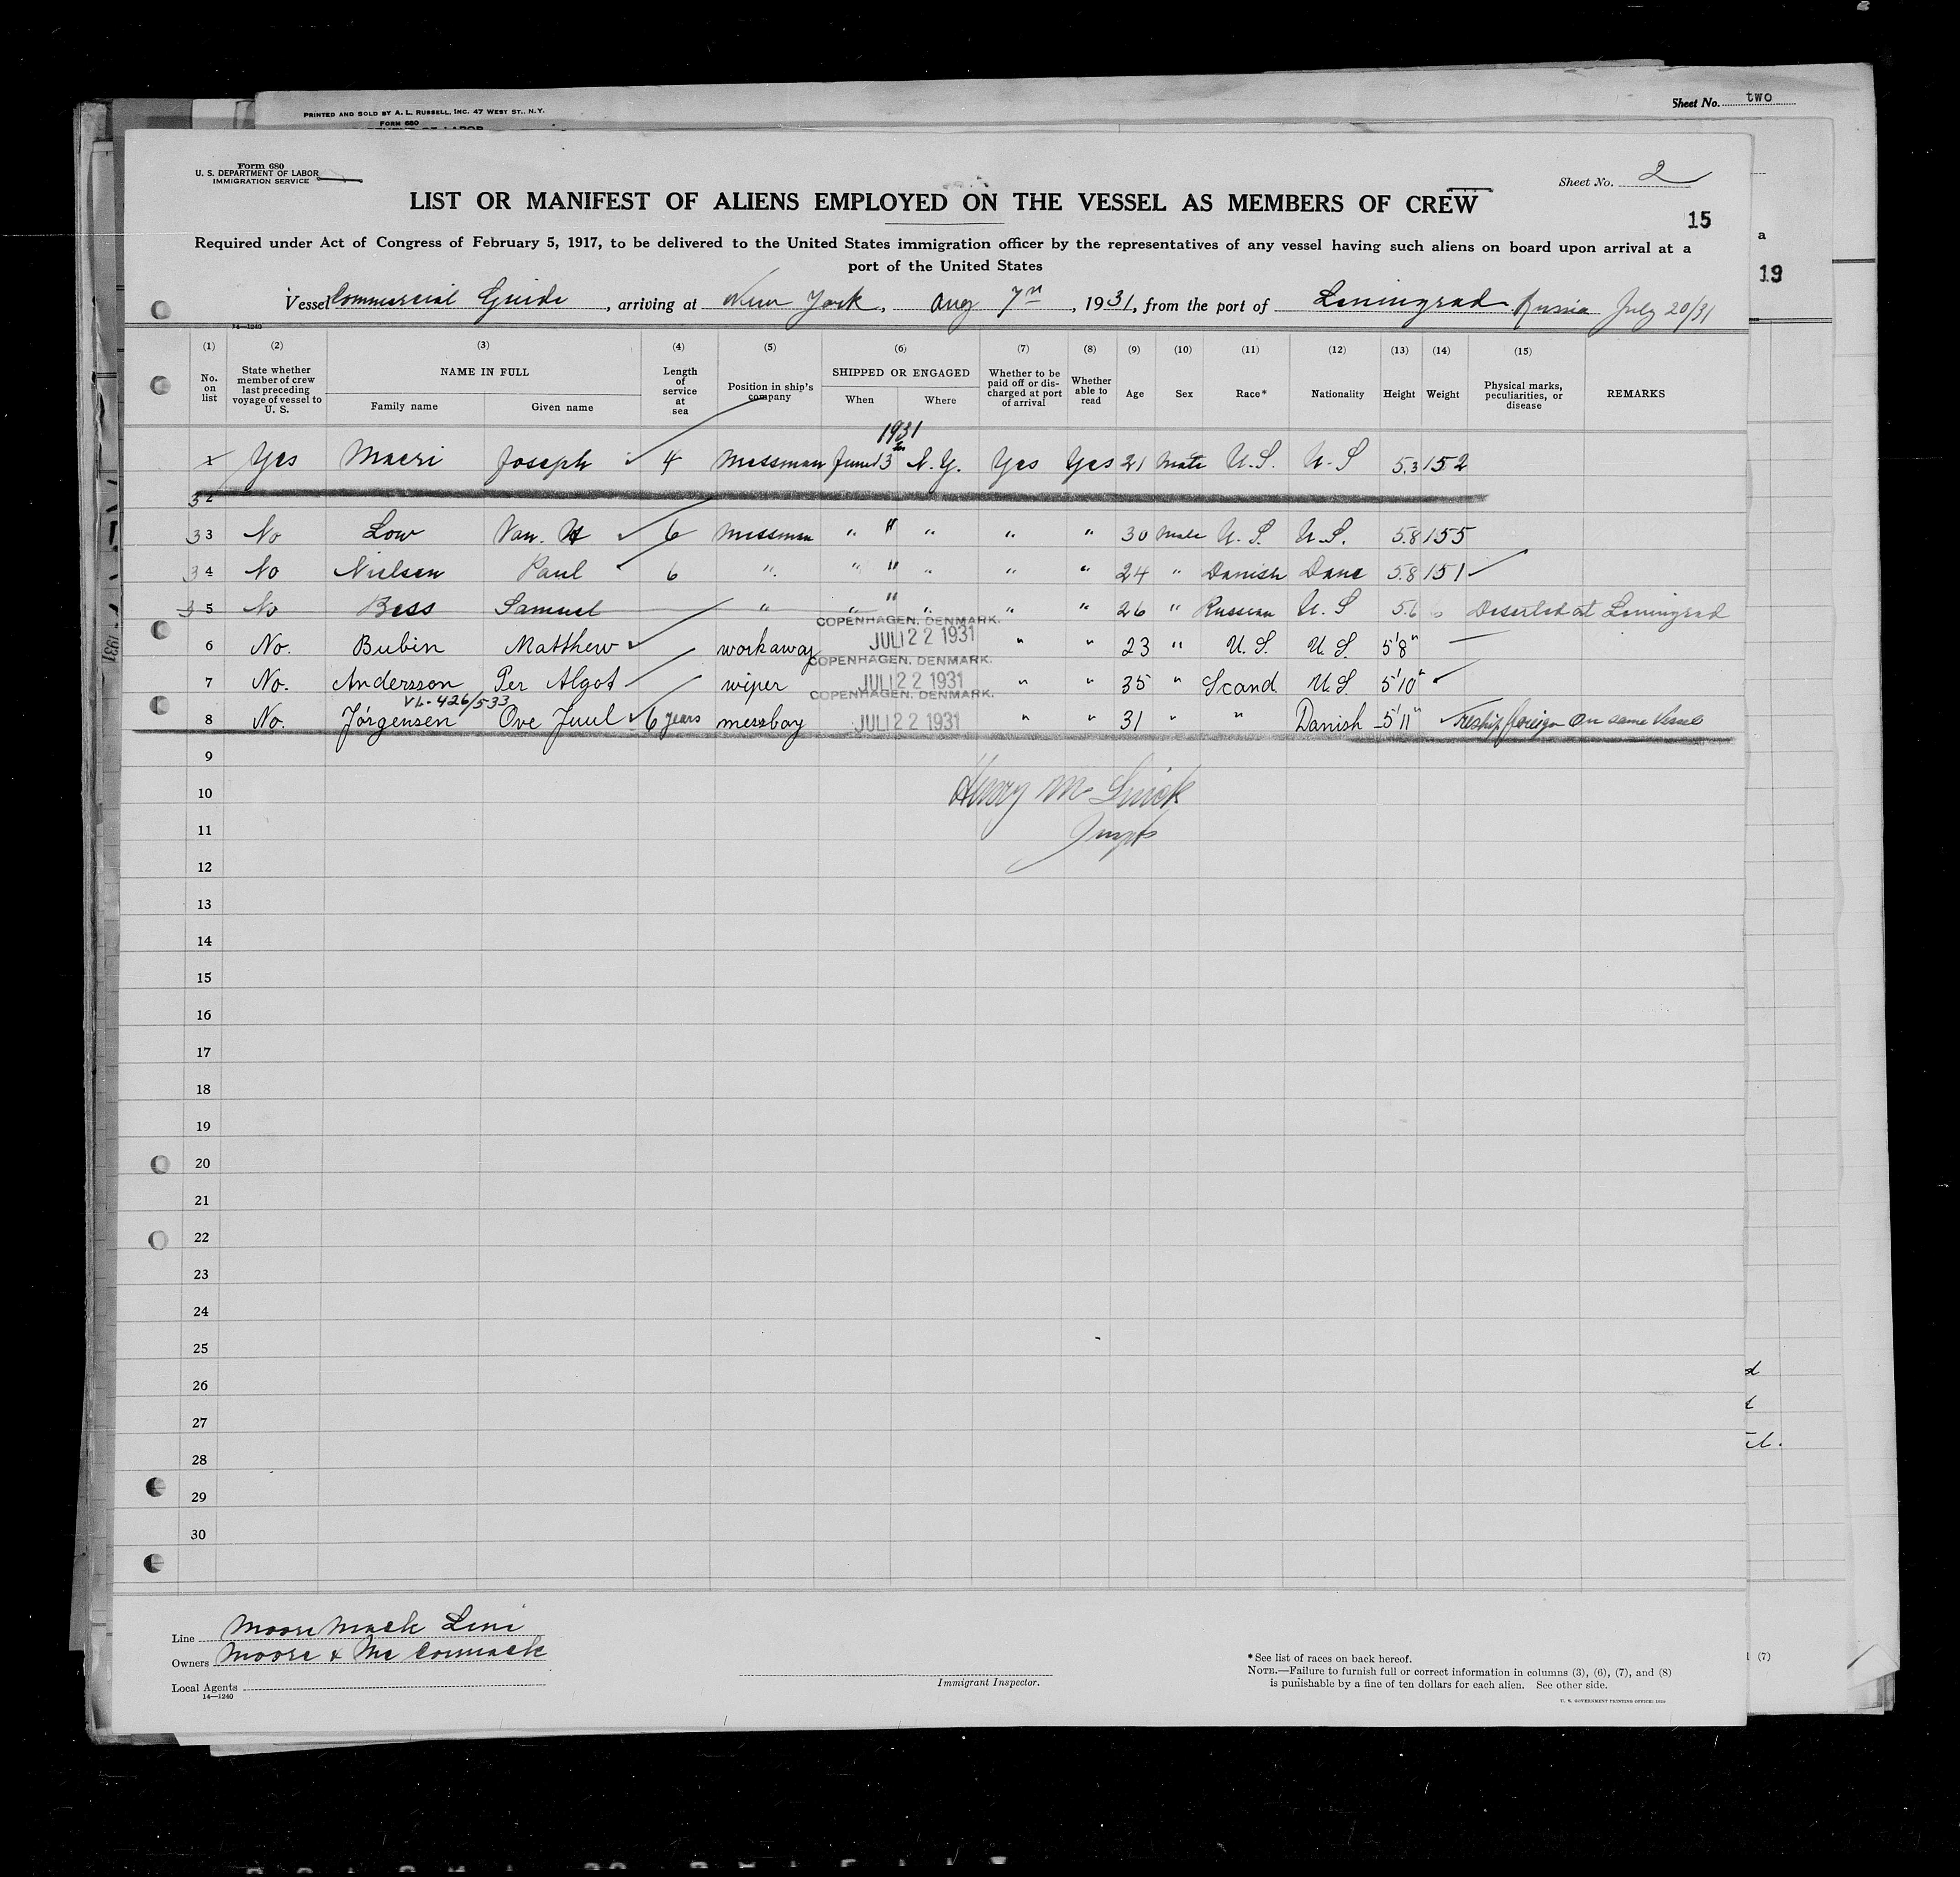 PRINTED AND SOLD BY A. L. RUSSELL, INC. 47 WEST ST., N.Y.
FORM 680
Sheet No. two
Form 680
U. S. DEPARTMENT OF LABOR
IMMIGRATION SERVICE
Sheet No. 2
LIST OR MANIFEST OF ALIENS EMPLOYED ON THE VESSEL AS MEMBERS OF CREW
15
Required under Act of Congress of February 5, 1917, to be delivered to the United States immigration officer by the representatives of any vessel having such aliens on board upon arrival at a
port of the United States
a
19
Vessel Commercial Guide, arriving at New York, Aug 7th, 1931, from the port of Leningrad Russia July 20/31
14—1240
(1) (2) (3) (4) (5) (6) (7) (8) (9) (10) (11) (12) (13) (14) (15)
No. on list
State whether member of crew last preceding voyage of vessel to U. S.
NAME IN FULL
Family name
Given name
Length of service at sea
Position in ship's company
SHIPPED OR ENGAGED
When
Where
Whether to be paid off or discharged at port of arrival
Whether able to read
Age
Sex
Race*
Nationality
Height
Weight
Physical marks, peculiarities, or disease
REMARKS
1931
1 Yes Macri Joseph 4 Messman June 13th N.Y. Yes Yes 21 Male U.S. U.S 5.3 152
3 2
3 3 No Low Van. H 6 Messman " " " " " 30 Male U.S. U.S. 5.8 155
3 4 No Nielsen Paul 6 " " " " " " 24 " Danish Dane 5.8 151
3 5 No Bess Samuel " " " " " " 26 " Russian U.S 5.6 Deserted at Leningrad
COPENHAGEN, DENMARK.
6 No. Bubin Matthew workaway JULI 22 1931 " " 23 " U.S. U.S. 5'8"
COPENHAGEN, DENMARK.
7 No. Andersson Per Algot wiper JULI 22 1931 " " 35 " Scand. U.S. 5'10"
VL-426/533
COPENHAGEN, DENMARK.
8 No. Jörgensen Ove Juul 6 years messboy JULI 22 1931 " " 31 " " Danish 5'11" Reship foreign on same vessel
9
10
11
12
13
14
15
16
17
18
19
20
21
22
23
24
25
26
27
28
29
30
Line Moore Mack Line
Owners Moore & McCormack
Local Agents
14—1240
Immigrant Inspector.
*See list of races on back hereof.
NOTE.—Failure to furnish full or correct information in columns (3), (6), (7), and (8)
is punishable by a fine of ten dollars for each alien. See other side.
(7)